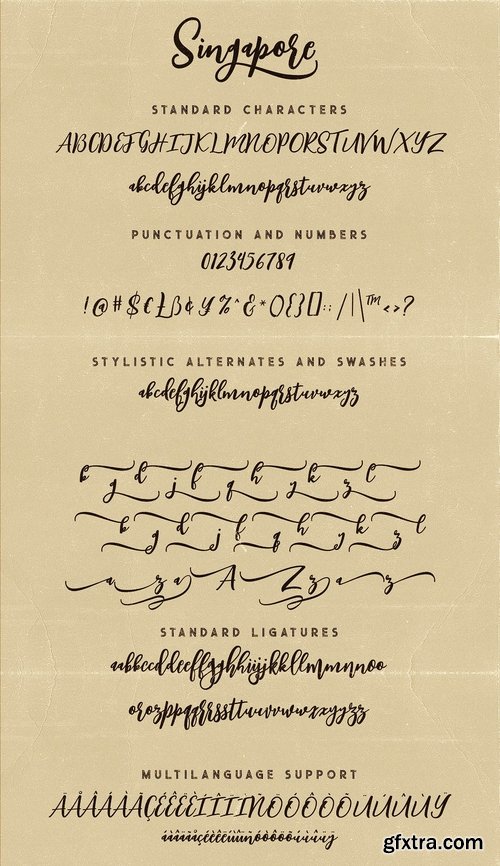 Singapore
STANDARD CHARACTERS
ABCDEFGHIJKLMNOPQRSTUVWXYZ
abcdefghijklmnopqrstuvwxyz
PUNCTUATION AND NUMBERS
0123456789
!@#$€£ß¢¥%^&*(){}[]:;/|\™<>?
STYLISTIC ALTERNATES AND SWASHES
abcdefghijklmnopqrstuvwxyz
b g d j f q h y k z l
b g d j f q h y k z l
a z a A Z z a z
STANDARD LIGATURES
aabbccddeeffgghhiijjkkllmmnnoo
orozppqqrrssttuuvvwwxxyyzz
MULTILANGUAGE SUPPORT
gfxtra.com